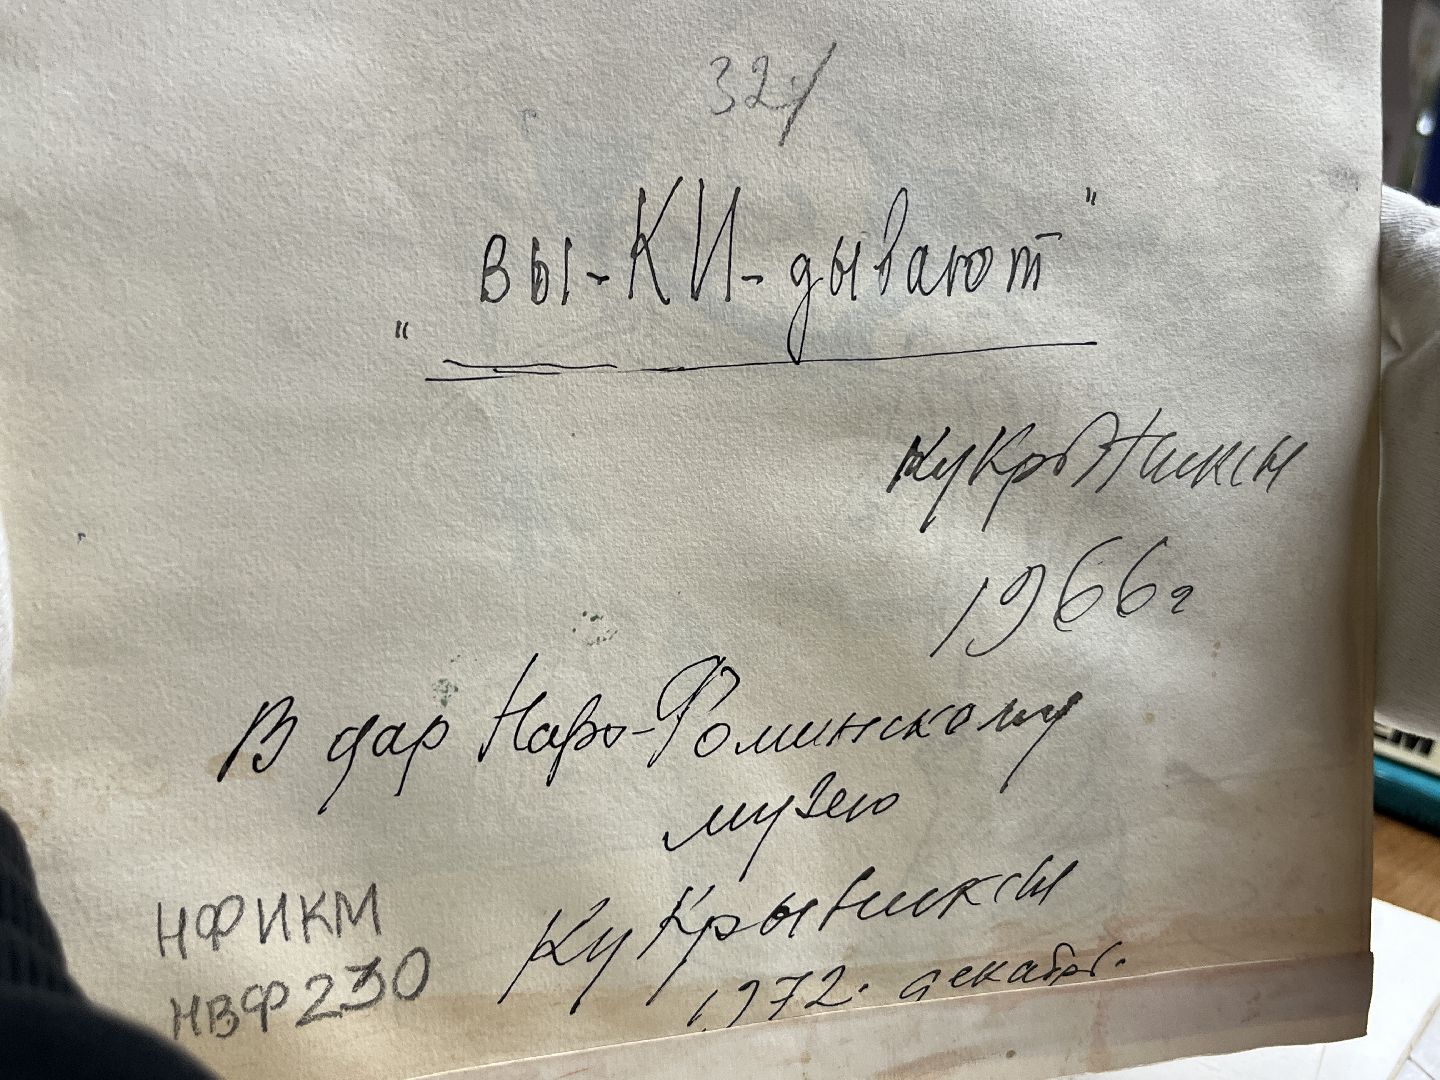 32
"вы-КИ-дывают"
Кукрыниксы
1966г
В дар Наро-Фоминскому
музею
Кукрыниксы
1972. декабрь.
НФИКМ
НВФ230